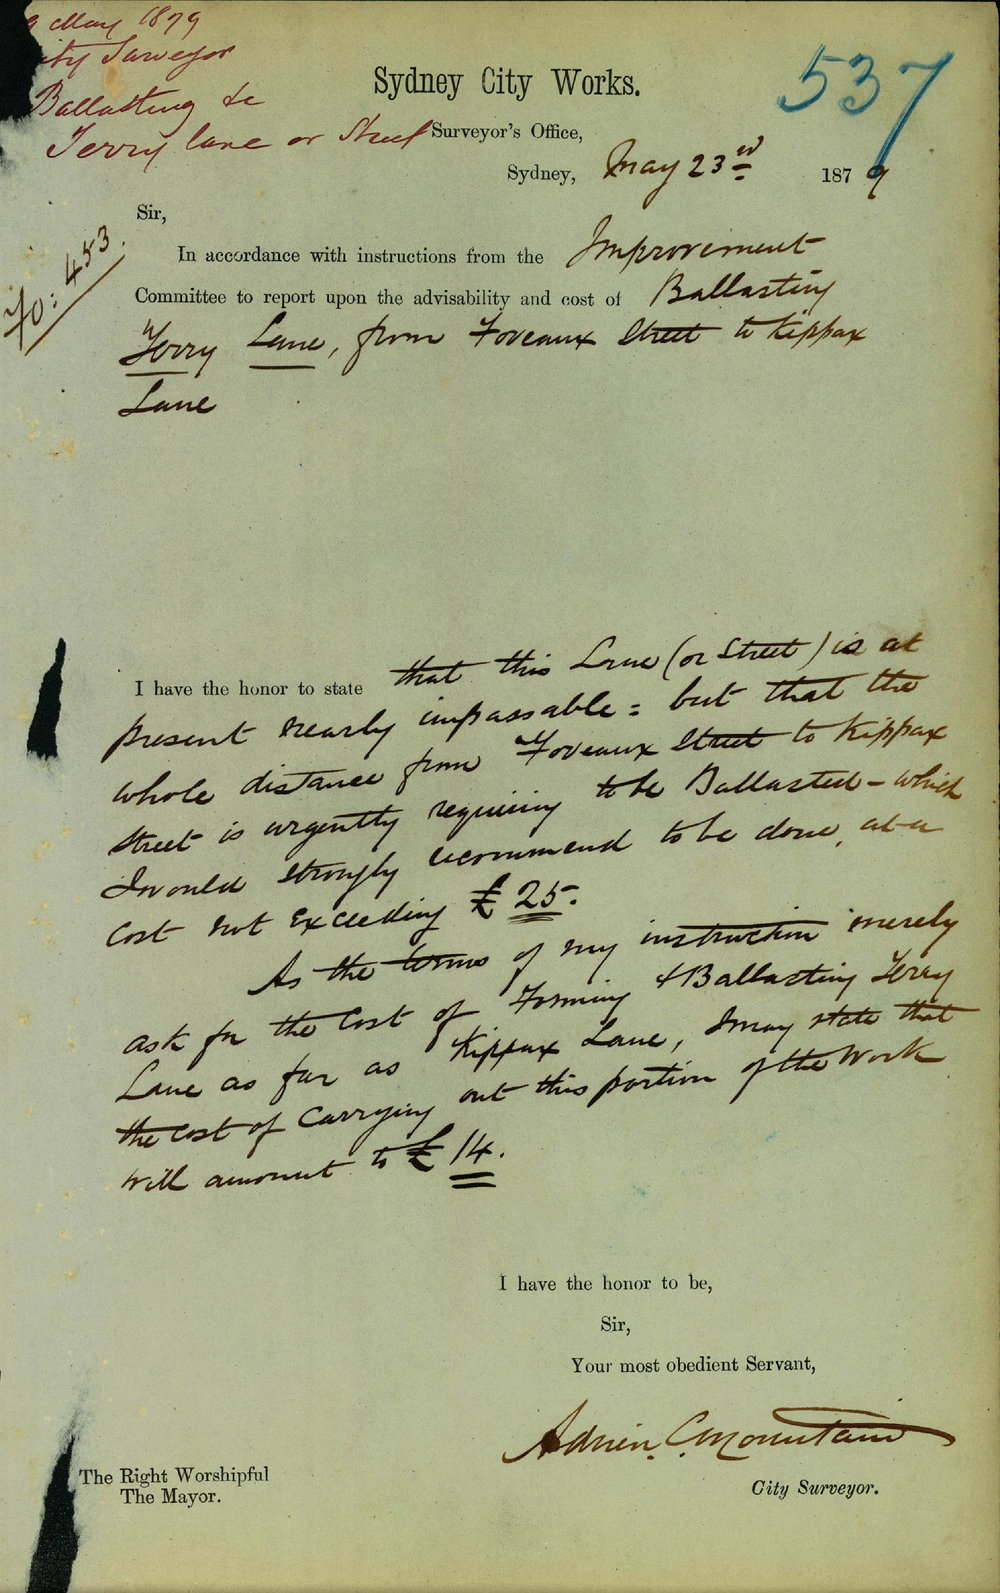 9 May 1879
ity Surveyor
Ballasting &c
Terry lane or Street
537
Sydney City Works.
Surveyor's Office,
Sydney, May 23rd 1879
No: 453.
Sir,
In accordance with instructions from the Improvement
Committee to report upon the advisability and cost of Ballasting
Terry Lane, from Foveaux Street to Kippax
Lane
I have the honor to state that this Lane (or Street) is at
present nearly impassable = but that the
whole distance from Foveaux Street to Kippax
Street is urgently requiring to be Ballasted - which
I would strongly recommend to be done, at a
cost not exceeding £25.
As the terms of my instruction merely
ask for the Cost of Forming & Ballasting Terry
Lane as far as Kippax Lane, I may state that
the cost of Carrying out this portion of the Work
will amount to £14.
I have the honor to be,
Sir,
Your most obedient Servant,
Adrien C. Mountain
City Surveyor.
The Right Worshipful
The Mayor.